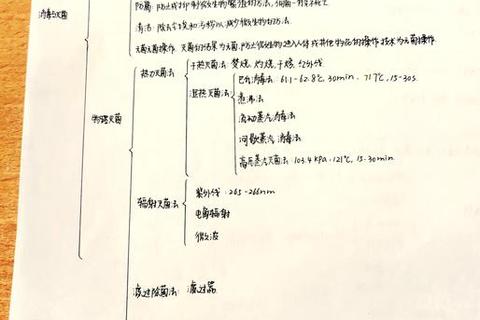 消毒与灭菌
防腐：防止或抑制微生物繁殖的方法，细菌一般不死亡
清洁：除去尘埃和污秽以减少微生物的方法。
无菌 无菌操作 灭菌的结果为无菌，防止微生物进入人体或其他物品的操作技术为无菌操作
物理灭菌
热力灭菌法
干热灭菌法：焚烧，灼烧，干烤，红外线
湿热灭菌法
巴氏消毒法：61.1-62.8℃，30min. 71.7℃，15-30s.
煮沸法
流动蒸汽消毒法
间歇蒸汽消毒法
高压蒸汽灭菌法：103.4kPa. 121℃，15-30min
辐射灭菌法
紫外线：265-266nm
电离辐射
微波
滤过除菌法：滤过器